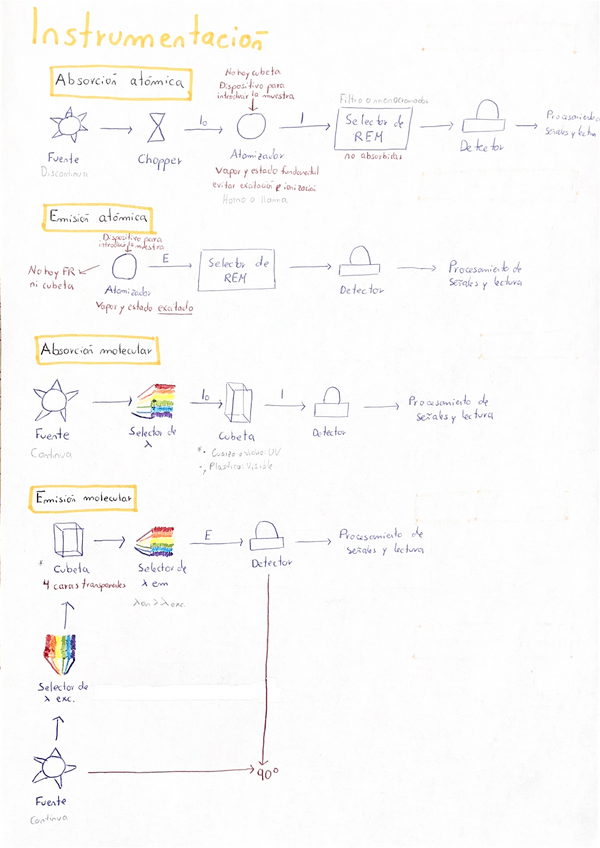 Instrumentación
Absorción atómica
No hay cubeta
Dispositivo para
introducir la muestra
Fuente
Discontinua
Chopper
I₀
Atomizador
Vapor y estado fundamental
evitar excitación e ionización
Horno o llama
I
Filtro o monocromador
Selector de
REM
no absorbidas
Detector
Procesamiento
señales y
Emisión atómica
Dispositivo para
introducir la muestra
No hay FR
ni cubeta
Atomizador
Vapor y estado excitado
E
Selector de
REM
Detector
Procesamiento de
señales y lectura
Absorción molecular
Fuente
Continua
Selector de
λ
I₀
Cubeta
* · Cuarzo o vidrio: UV
· Plástico: Visible
I
Detector
Procesamiento de
señales y lectura
Emisión molecular
* Cubeta
4 caras transparentes
Selector de
λ em
λ em > λ exc.
E
Detector
Procesamiento de
señales y lectura
Selector de
λ exc.
Fuente
Continua
90°